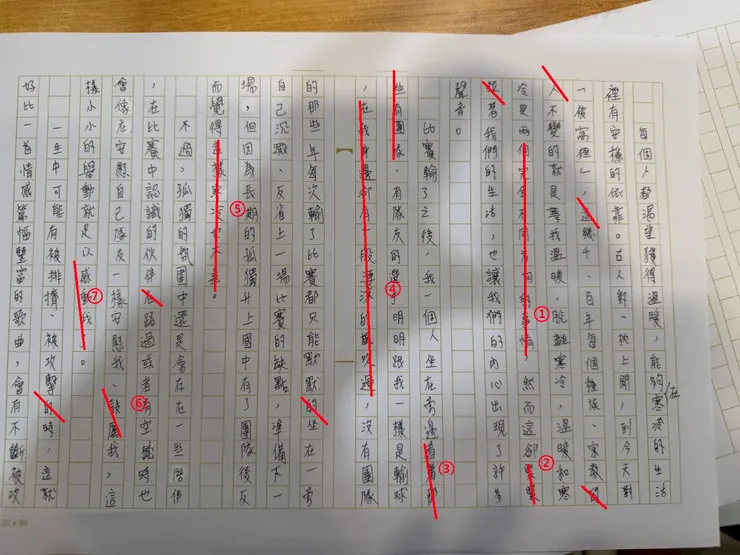 每個人都渴望獲得溫暖，能夠寒冷的生活
在
裡有安穩的依靠。古人對一枕上聞，到今天對
人不變的就是尋找溫暖，脫離寒冷 溫暖和寒
冷是兩個完全不同方向的事情，然而這卻緊緊
跟著我們的生活，也讓我們的內心出現了許多
聲音。
比賽輸了之後，我一個人坐在旁邊看著那
些有團隊、有隊友的選手明明跟我一樣是輸球
，在我身邊卻有一股淒涼的風吹過，沒有團隊
的那些年每次輸了比賽都只能默默的坐在一旁
自己沉澱、反省上一場比賽的缺點，準備下一
場，但因為長期的孤獨升上國中有了團隊後反
而覺得這樣寒冷也不差。
不過，孤獨的氛圍中還是會存在一些陪伴
，在比賽中認識的伙伴在路過或者有空檔時也
會像在安慰自己隊友一樣安慰我、鼓勵我，這
樣小小的舉動就足以感動我。
一生中可能有被排擠、被攻擊的時，這就
好比一首情感篇幅豐富的歌曲，會有不斷被次
①
②
③
④
⑤
⑥
⑦
20 x 20